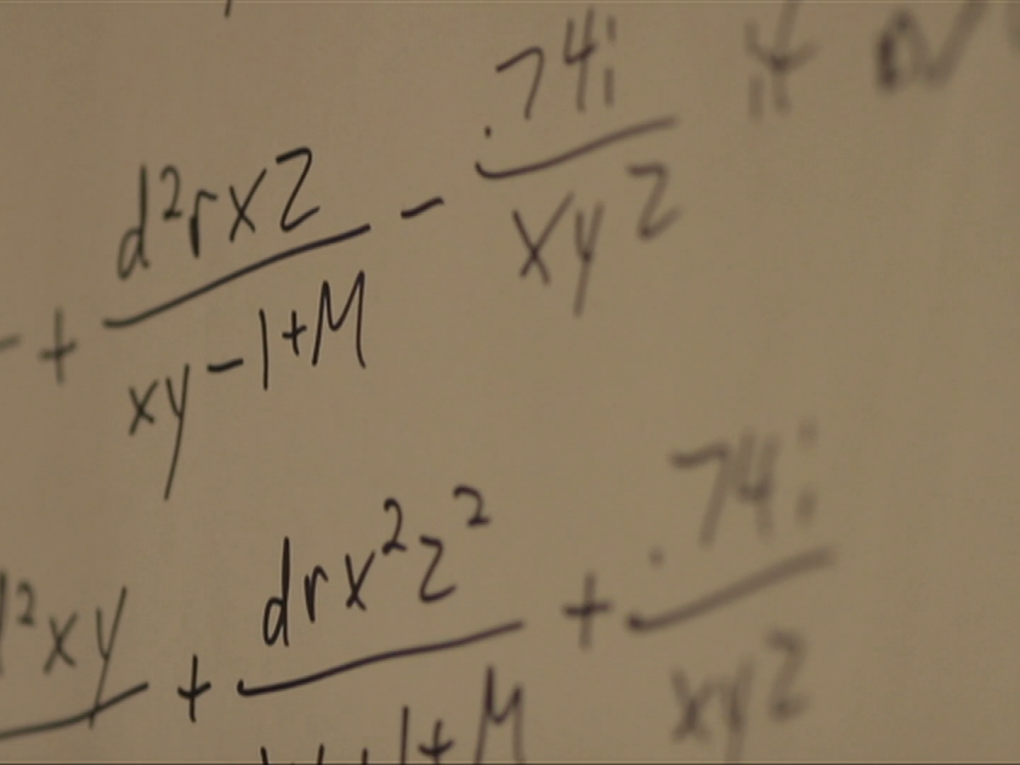 - + d²rxz / xy - 1 + M - .74i / xyz
²xy + drx²z² / 1 + M + .74i / xyz